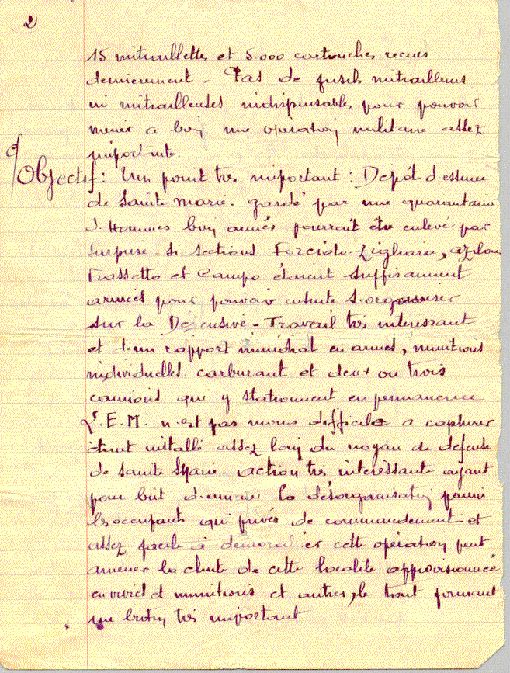 2
15 mitraillettes et 5.000 cartouches recues
dernierement - Pas de fusils mitrailleurs
ni mitrailleuses indispensables pour pouvoir
mener a bien une operation militaire assez
importante.
Objectif : Un point tres important : Depot d'essence
de Sainte Marie. gardé par une quarantaine
d'hommes bien armés pourrait être enlevé par
surprise. Si sections Forciolo-Zigliara, Azilone
Frassetto et Campo étaient suffisament
armées pour pouvoir ensuite s'organiser
sur la Defensive - Travail tres interessant
et d'un rapport en armes, munitions
individuelles carburant et deux ou trois
camions que y stationnent en permanence
L'E.M. n'est pas moins difficile a capturer
étant installé assez loin du noyau de défense
de Sainte Marie action tres intéressante ayant
pour but d'amener la désorganisation parmi
les occupants qui privés de commandement et
assez facile à cette opération peut
amener la chute de cette localité approvisionnée
en vivres et munitions et autres, le tout formant
un butin tres important